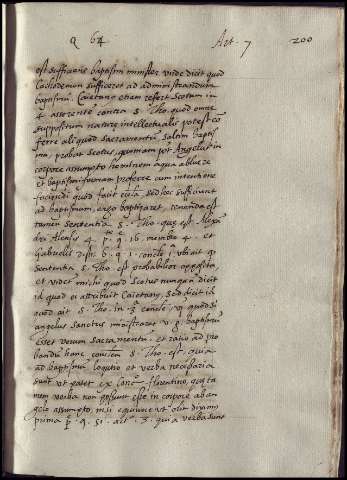 Q 64 Art. 7 200
est sufficiens baptismi minister unde dicit quod
Cachodemon sufficeret ad administrandum
baptismum. Caietanus etiam refert Scotum in
4 asserentem contra S. Tho. quod omne
suppositum nature intellectualis potest co
ferre aliquod sacramentum saltim baptis
mi, probat Scotus, quoniam pot Angelus in
corpore assumpto hominem aqua abluere
et baptismi formam proferre cum intentione
faciendi quod facit eclia sed hec sufficiunt
ad baptismum, ergo baptizaret, tenenda est
tamen sententia S. Tho. que est Alexa
dri Alensis 4 p. q. 16 membro 4. et
Gabrielis 2 q. 1. concle ubi ait q
sententia S. Tho. est probabilior opposita,
et videt mihi quod Scotus nunquam dicit
id quod ei attribuit Caietanus, sed dicit is
quod ait S. Tho. in 3 concle, q quod si
angelus sanctus ministraret baptismum
esset verum sacramentum. et ratio ad pro
bandum hanc S. Tho. est. quia
ad baptismum loqutio et verba necessaria
sunt ut patet ex Conc. florentino, que ta
men verba non possunt esse in corpore ab an
gelo assumpto, nisi equivoce ut olim diximus
prima p. q. 51. art. 3. quia verba sunt